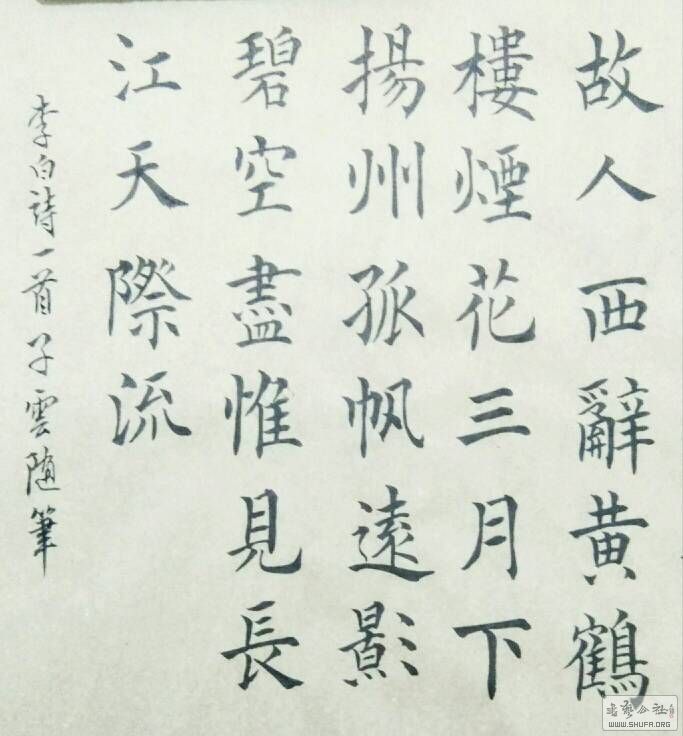 故人西辭黄鶴
樓煙花三月下
揚州孤帆遠影
碧空盡惟見長
江天際流
李白詩一首子雲随筆
WWW.SHUFA.ORG